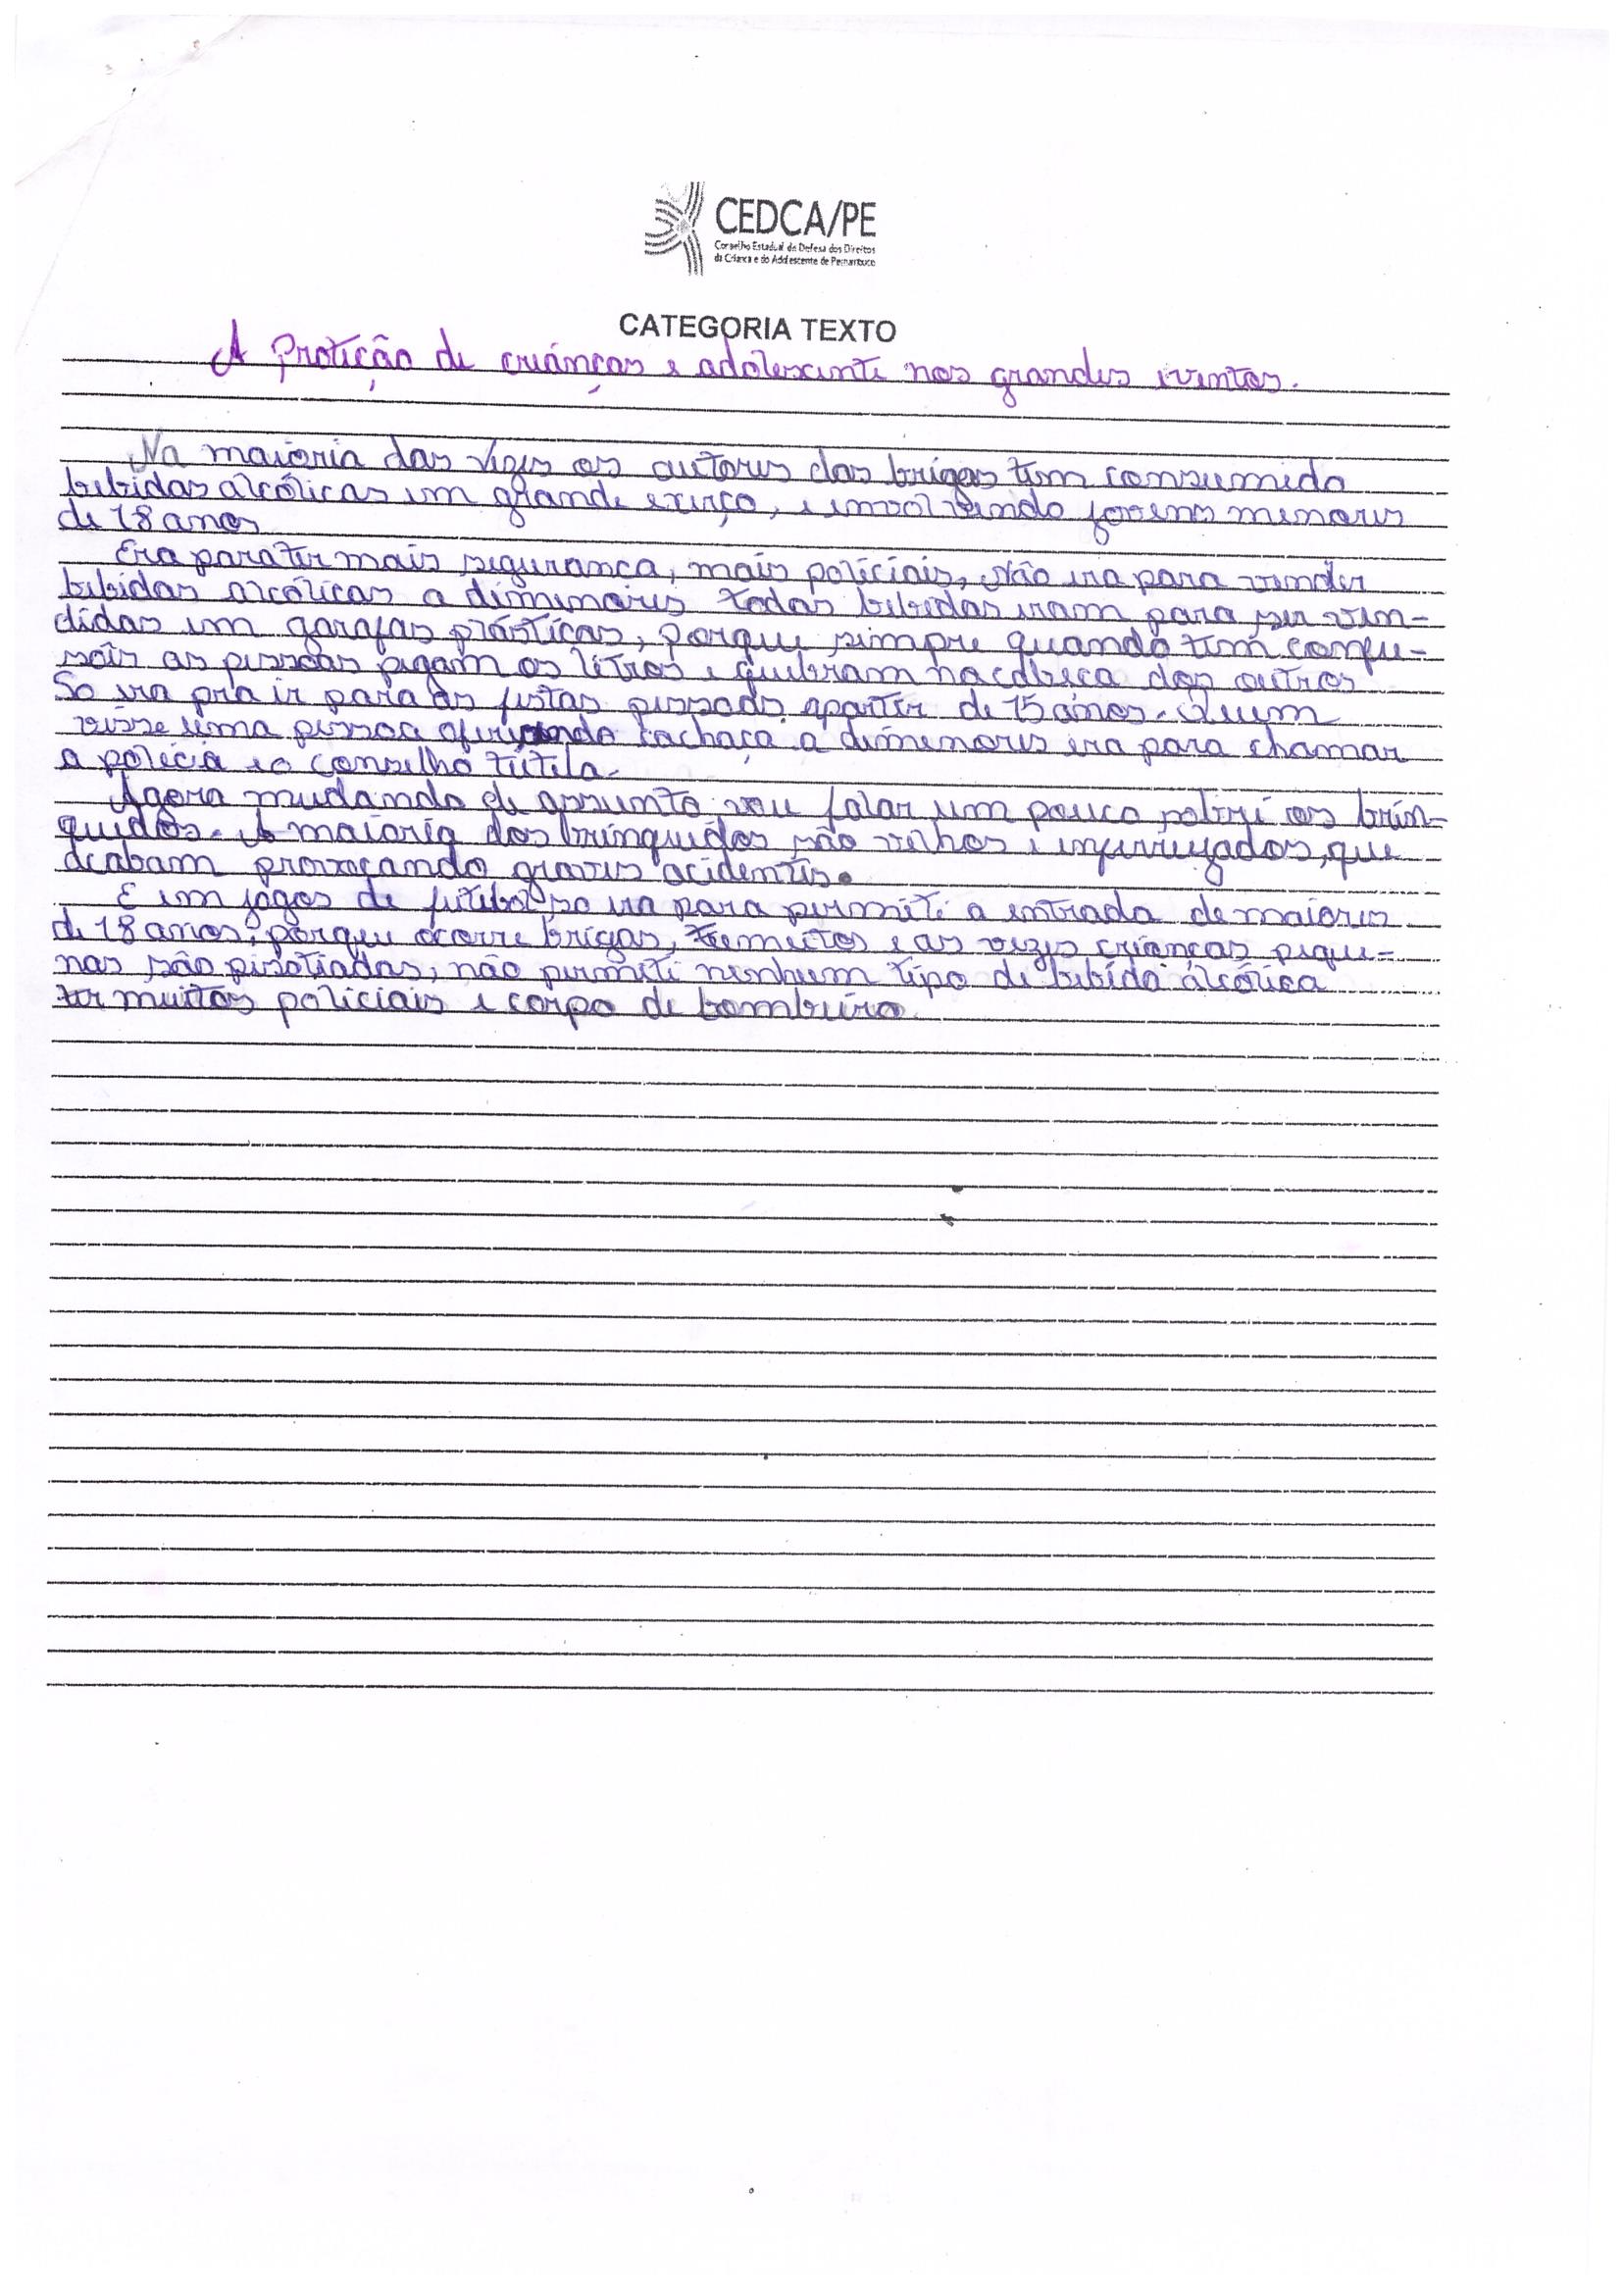 CEDCA/PE
Conselho Estadual de Defesa dos Direitos
da Criança e do Adolescente de Pernambuco
CATEGORIA TEXTO
A Proteção de criánças e adolescente nos grandes eventos.
Na maioria das vezes os autores das brigas tem consumido
bebidas alcólicas em grande exerço, e envolvendo jovens menores
de 18 anos
Era para ter mais segurança, mais policiais, Não era para vender
bebidas alcólicas a dimenores todas bebidas eram para ser ven-
didas em garafas plásticas, porque sempre quando tem confu-
sois as pessoas pegam os litros e quebram na cabeça dos outros
So era pra ir para as festas pessoas apartir de 15 anos. Quem
visse uma pessoa oferecendo cachaça a dimenores era para chamar
a polícia e o Conselho tutela.
Agora mudando de assunto vou falar um pouco sobre os brin-
quedos. A maioria dos brinquedos são velhos e enferrejados, que
acabam provocando graves acidentes.
E em jogos de futebol so era para permete a entrada de maiores
de 18 anos, porque ocorre brigas, e as vezes crianças peque-
nas são pisotiadas, não permete nenhum tipo de bebida álcólica
ter muitos policiais e corpo de bombeiro.